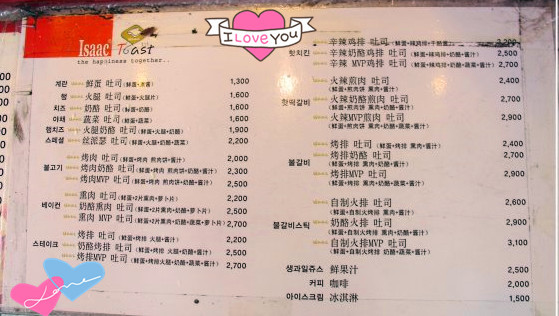 I LOVE YOU
Isaac Toast
the happiness together..
계란 鲜蛋 吐司 (鲜蛋+ 1,300
햄 火腿 吐司 (鲜蛋+火腿片) 1,600
치즈 奶酪 吐司 (鲜蛋+奶酪) 1,600
야채 蔬菜 吐司 (鲜蛋+蔬菜) 1,600
햄치즈 火腿奶酪 吐司 (鲜蛋+火腿+奶酪) 1,900
스페셜 丝派瑟 吐司 (鲜蛋+火腿+奶酪+蔬菜) 2,200
불고기 烤肉 吐司 (鲜蛋+烤肉 煎肉饼+酱汁) 2,000
烤肉奶酪 吐司 (鲜蛋+烤肉 煎肉饼+奶酪+酱汁) 2,300
烤肉MVP 吐司 (鲜蛋+烤肉 煎肉饼+奶酪+蔬菜+酱汁) 2,500
베이컨 熏肉 吐司 (鲜蛋+2片熏肉+萝卜片) 2,200
奶酪熏肉 吐司 (鲜蛋+2片熏肉+奶酪+萝卜片) 2,500
熏肉 MVP 吐司 (鲜蛋+2片熏肉+奶酪+蔬菜+萝卜片) 2,700
스테이크 烤排 吐司 (鲜蛋+烤排 火腿+酱汁) 2,200
奶酪烤排 吐司 (鲜蛋+烤排 火腿+奶酪+酱汁) 2,500
烤排MVP 吐司 (鲜蛋+烤排火腿+奶酪+蔬菜+酱汁) 2,700
핫치킨 辛辣鸡排 吐司 2,200
辛辣奶酪鸡排 吐司 (鲜蛋+辣鸡排+奶酪+酱汁) 2,500
辛辣 MVP鸡排 吐司 (鲜蛋+辣鸡排+奶酪+蔬菜+酱汁) 2,700
핫떡갈비 火辣煎肉 吐司 2,400
(鲜蛋+煎肉饼 熏肉+酱汁)
火辣奶酪煎肉 吐司 2,700
(鲜蛋+煎肉饼 熏肉+奶酪+酱汁)
火辣MVP煎肉 吐司 2,900
(鲜蛋+煎肉饼 熏肉+奶酪+蔬菜+酱汁)
불갈비 烤排 吐司 (鲜蛋+烤排 熏肉+酱汁) 2,400
烤排奶酪 吐司 2,700
(鲜蛋+烤排 熏肉+奶酪+酱汁)
烤排MVP 吐司 2,900
(鲜蛋+烤排 熏肉+奶酪+蔬菜+酱汁)
불갈비스틱 自制火排 吐司 2,600
(鲜蛋+自制火烤排 熏肉+酱汁)
奶酪火排 吐司 2,900
(鲜蛋+自制火烤排 熏肉+奶酪+酱汁)
自制火排MVP 吐司 3,100
(鲜蛋+自制火烤排 熏肉+奶酪+蔬菜+酱汁)
생과일쥬스 鲜果汁 2,500
커피 咖啡 2,000
아이스크림 冰淇淋 1,500
Love